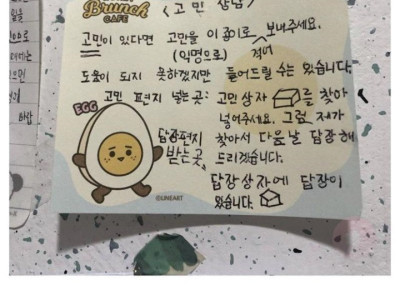 Brunch
CAFE
<고민 상담>
고민이 있다면 고민을 이 종이로 적어 보내주세요.
(익명으로)
도움이 되지 못하겠지만 들어드릴 수는 있습니다.
고민 편지 넣는 곳: 고민 상자 를 찾아
넣어주세요. 그럼, 제가
EGG
답장편지 받는 곳, 찾아서 다음날 답장해
드리겠습니다.
답장 상자에 답장이
있습니다.
©LINEART